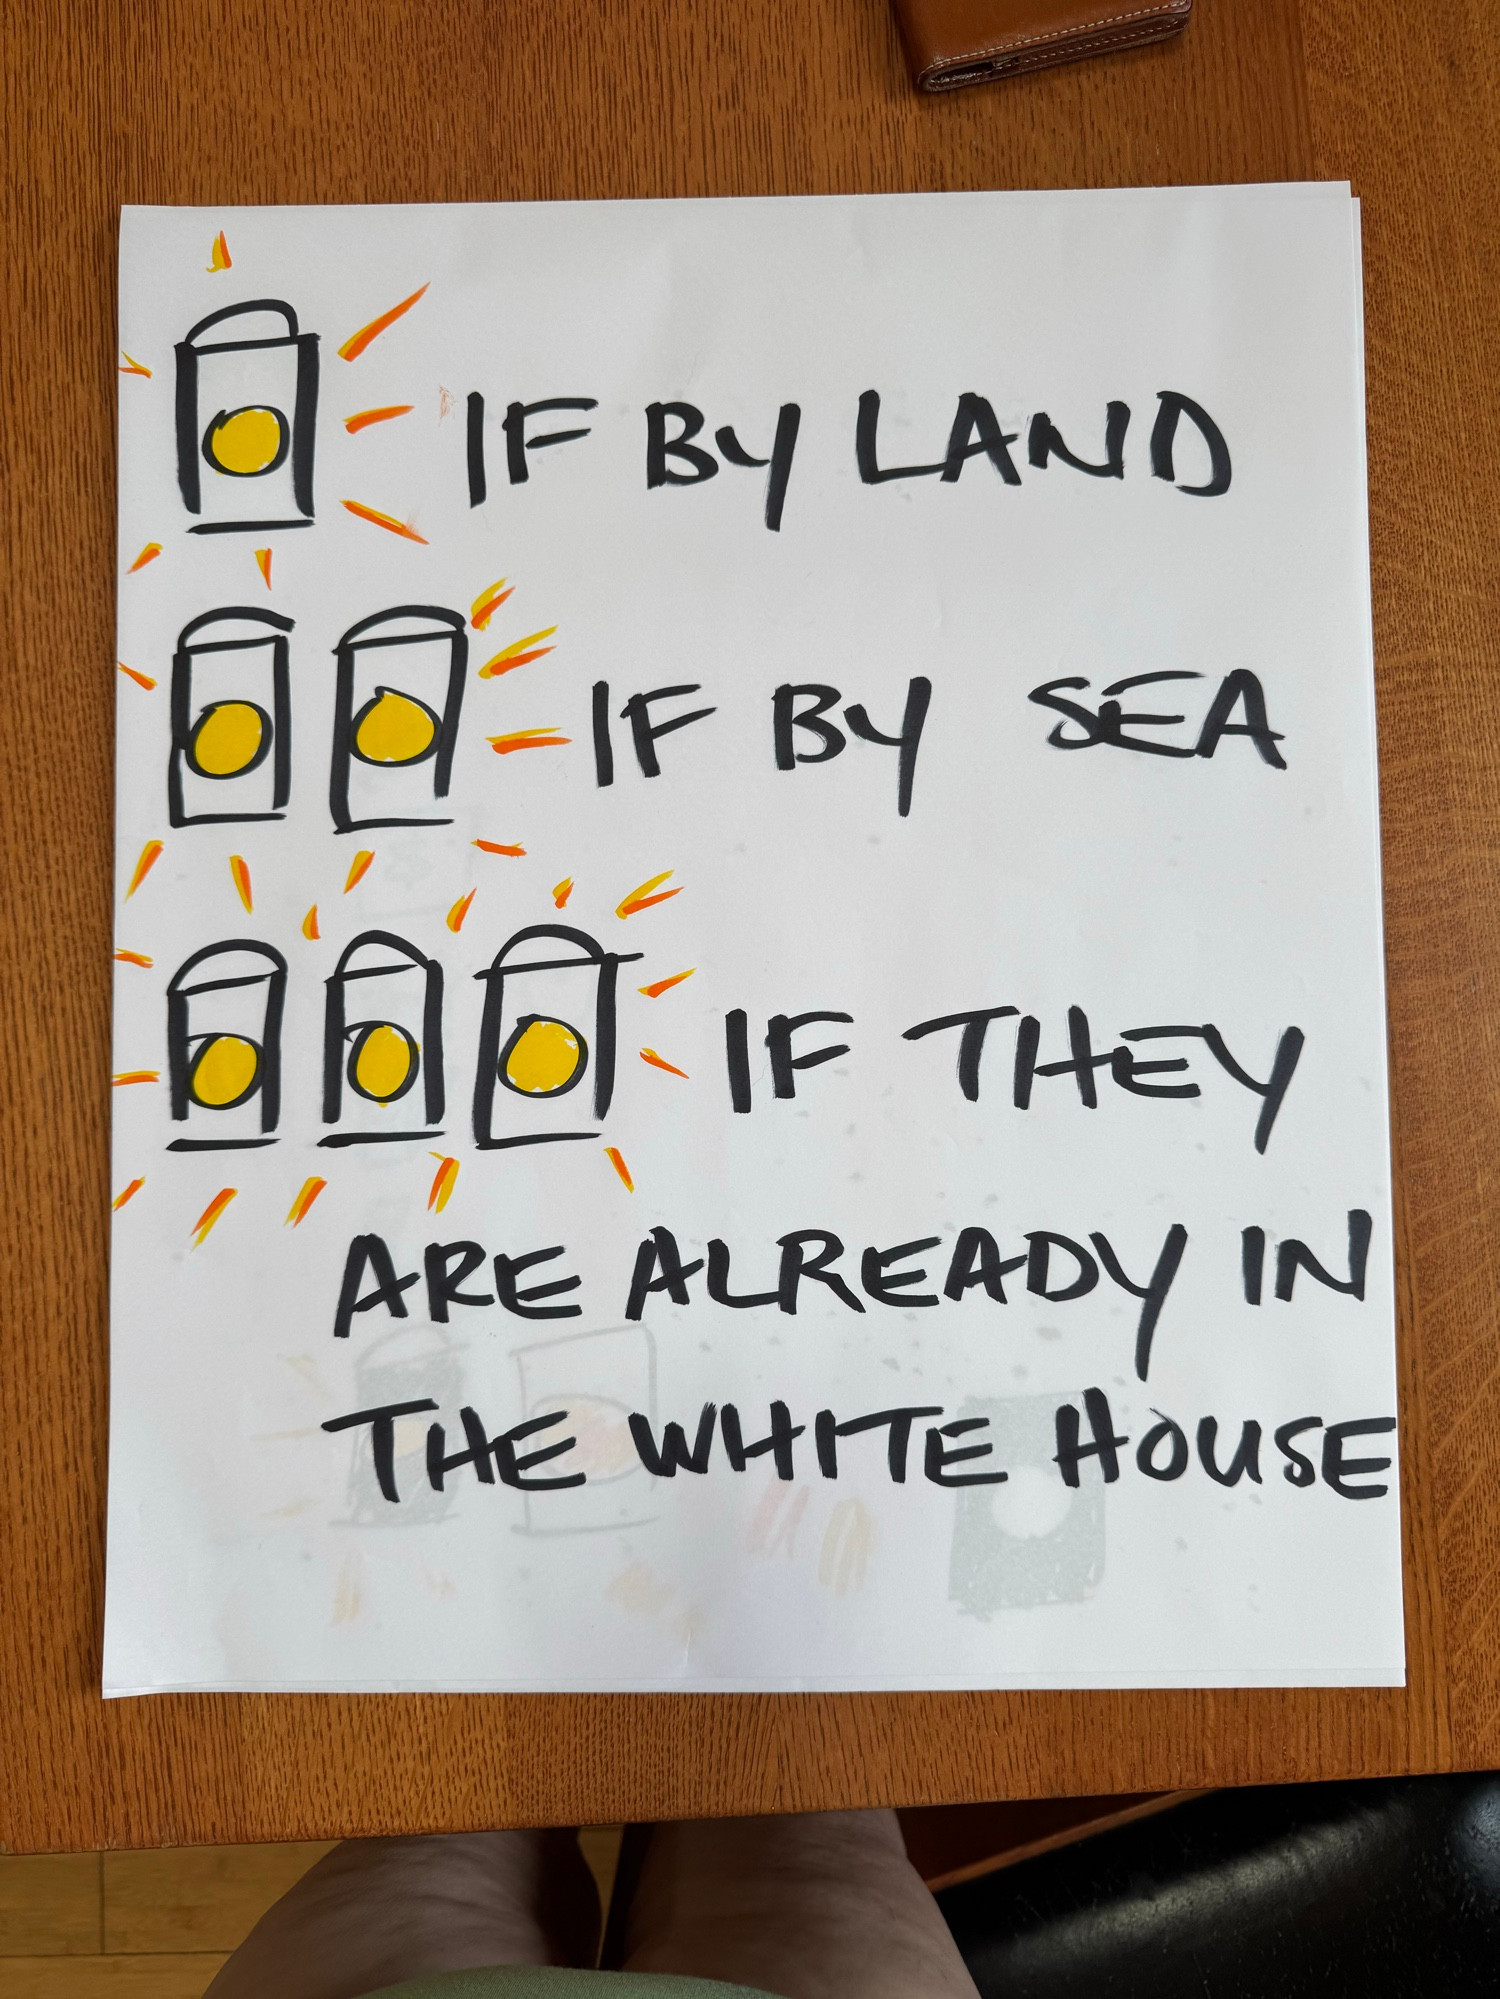 IF BY LAND
IF BY SEA
IF THEY
ARE ALREADY IN
THE WHITE HOUSE